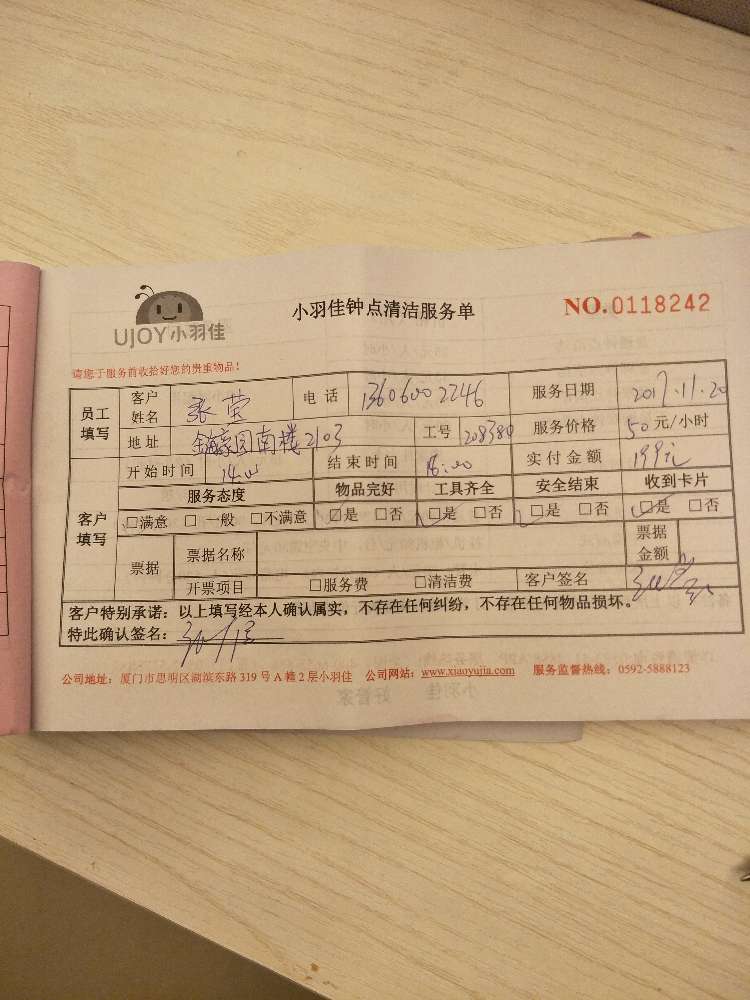 UJOY小羽佳
小羽佳钟点清洁服务单
NO.0118242
请您于服务前收拾好您的贵重物品!
员工填写 客户姓名 张莹 电话 13606002246 服务日期 2017.11.20
地址 南楼2103 工号 208380 服务价格 50元/小时
客户填写 开始时间 结束时间 18:00 实付金额 199元
服务态度 物品完好 工具齐全 安全结束 收到卡片
☑满意 □一般 □不满意 ☑是 □否 ☑是 □否 ☑是 □否 ☑是 □否
票据 票据名称 票据金额
开票项目 □服务费 □清洁费 客户签名
客户特别承诺:以上填写经本人确认属实,不存在任何纠纷,不存在任何物品损坏。
特此确认签名:
公司地址:厦门市思明区湖滨东路319号A幢2层小羽佳 公司网站:www.xiaoyujia.com 服务监督热线:0592-5888123